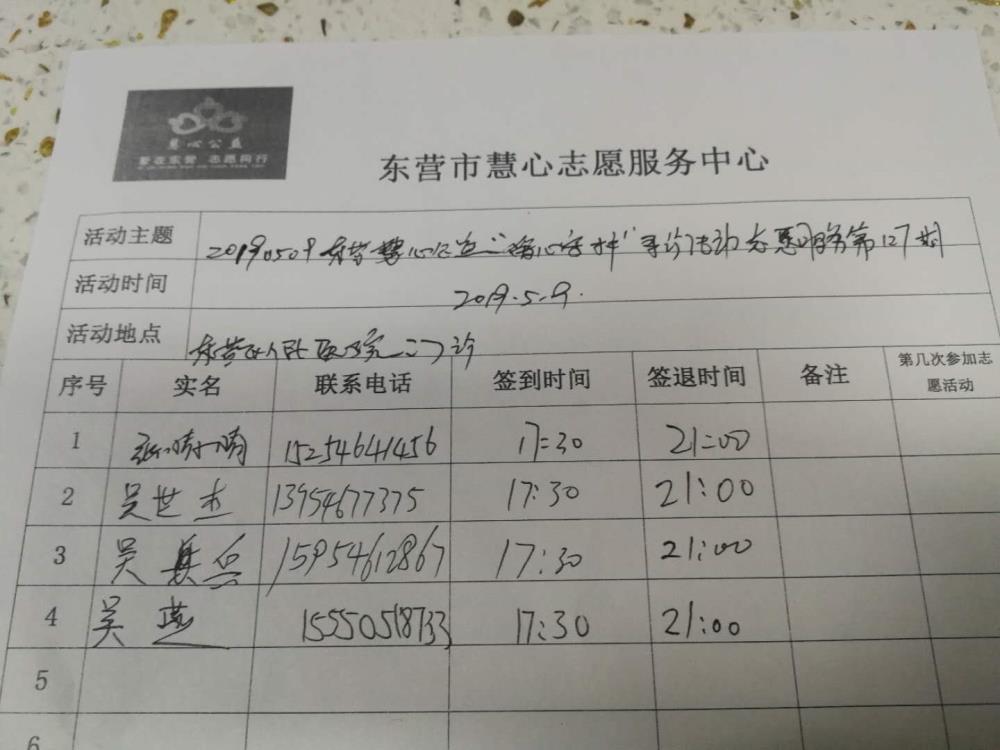 慧心公益
爱在东营 志愿同行
东营市慧心志愿服务中心
活动主题 20190509东营慧心公益 导诊活动志愿服务第127期
活动时间 2019.5.9.
活动地点 东营区人民医院门诊
序号 实名 联系电话 签到时间 签退时间 备注 第几次参加志愿活动
1 15254641456 17:30 21:00
2 吴世杰 13954677375 17:30 21:00
3 吴 15954612867 17:30 21:00
4 吴 15550518733 17:30 21:00
5
6